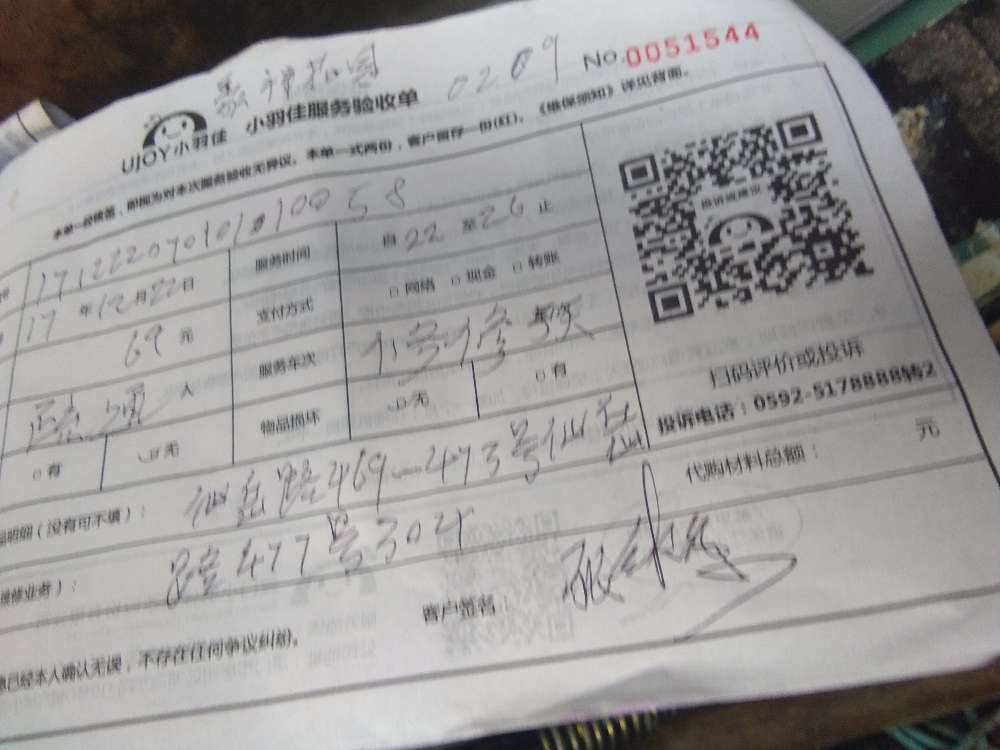 0209
No.0051544
UJOY小羽佳 小羽佳服务验收单
本单一经签，即视为对本次服务验收无异议。本单一式两份，客户留存一份(红)。《维保须知》详见背面。
17122207010100058
17 年12月22日 服务时间 自22 至26 止
69 元 支付方式 □ 网络 □ 现金 □ 转账
人 服务车次
□有 □无 物品损坏 □无 □有
投诉或建议
扫码评价或投诉
投诉电话：0592-5178888转2
明细（没有可不填）： 仙岳路469—473号仙
代购材料总额： 元
维修业务）： 路477号304
客户签名：
已经本人确认无误，不存在任何争议纠纷。